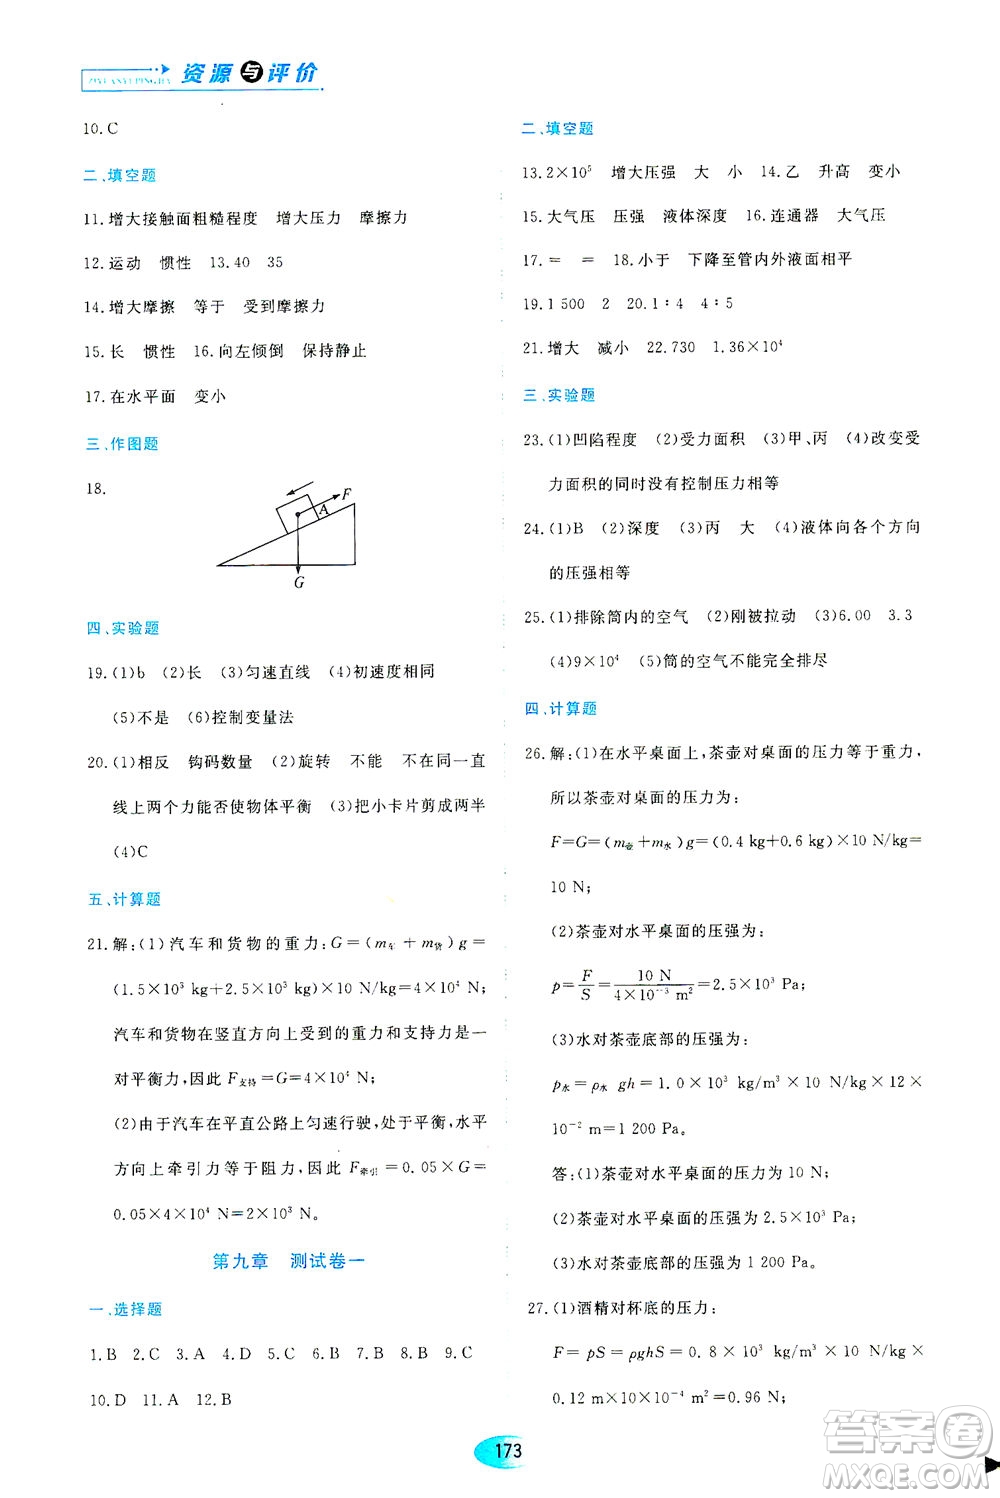 资源与评价
ZIYUANYUPINGJIA
10.C
二、填空题
11.增大接触面粗糙程度 增大压力 摩擦力
12.运动 惯性 13.40 35
14.增大摩擦 等于 受到摩擦力
15.长 惯性 16.向左倾倒 保持静止
17.在水平面 变小
三、作图题
18.
F
A
G
四、实验题
19.(1)b (2)长 (3)匀速直线 (4)初速度相同
(5)不是 (6)控制变量法
20.(1)相反 钩码数量 (2)旋转 不能 不在同一直
线上两个力能否使物体平衡 (3)把小卡片剪成两半
(4)C
五、计算题
21.解:(1)汽车和货物的重力:G=(m车+m货)g=
(1.5×10³ kg+2.5×10³ kg)×10 N/kg=4×10⁴ N;
汽车和货物在竖直方向上受到的重力和支持力是一
对平衡力,因此 F支持=G=4×10⁴ N;
(2)由于汽车在平直公路上匀速行驶,处于平衡,水平
方向上牵引力等于阻力,因此 F牵引=0.05×G=
0.05×4×10⁴ N=2×10³ N。
第九章 测试卷一
一、选择题
1.B 2.C 3.A 4.D 5.C 6.B 7.B 8.B 9.C
10.D 11.A 12.B
二、填空题
13.2×10⁵ 增大压强 大 小 14.乙 升高 变小
15.大气压 压强 液体深度 16.连通器 大气压
17.= = 18.小于 下降至管内外液面相平
19.1 500 2 20.1∶4 4∶5
21.增大 减小 22.730 1.36×10⁴
三、实验题
23.(1)凹陷程度 (2)受力面积 (3)甲、丙 (4)改变受
力面积的同时没有控制压力相等
24.(1)B (2)深度 (3)丙 大 (4)液体向各个方向
的压强相等
25.(1)排除筒内的空气 (2)刚被拉动 (3)6.00 3.3
(4)9×10⁴ (5)筒的空气不能完全排尽
四、计算题
26.解:(1)在水平桌面上,茶壶对桌面的压力等于重力,
所以茶壶对桌面的压力为:
F=G=(m壶+m水)g=(0.4 kg+0.6 kg)×10 N/kg=
10 N;
(2)茶壶对水平桌面的压强为:
p=F/S=10 N/4×10⁻³ m²=2.5×10³ Pa;
(3)水对茶壶底部的压强为:
p水=ρ水 gh=1.0×10³ kg/m³×10 N/kg×12×
10⁻² m=1 200 Pa。
答:(1)茶壶对水平桌面的压力为 10 N;
(2)茶壶对水平桌面的压强为 2.5×10³ Pa;
(3)水对茶壶底部的压强为 1 200 Pa。
27.(1)酒精对杯底的压力:
F=pS=ρghS=0.8×10³ kg/m³×10 N/kg×
0.12 m×10×10⁻⁴ m²=0.96 N;
173
答案圈
MXQE.COM